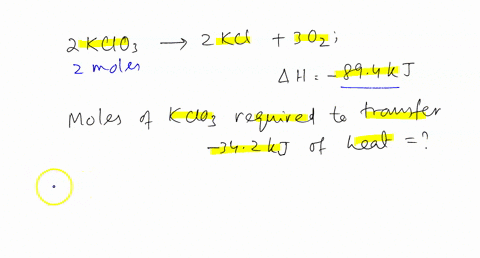 2 KClO₃ → 2 KCl + 3O₂;
2 moles
ΔH = - 89.4 kJ
Moles of KClO₃ required to transfer
-34.2 kJ of heat = ?